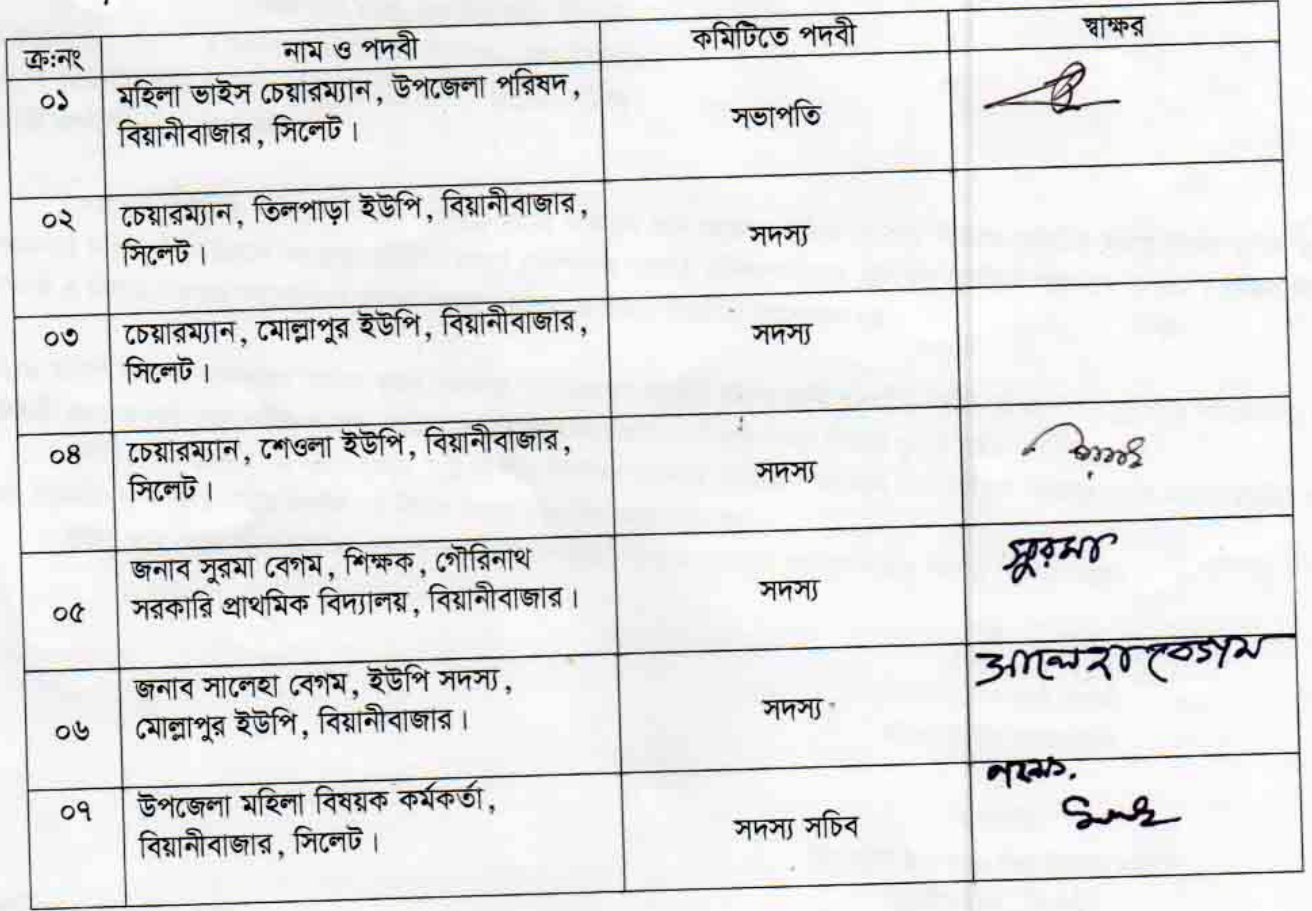 ক্র:নং নাম ও পদবী কমিটিতে পদবী স্বাক্ষর
০১ মহিলা ভাইস চেয়ারম্যান, উপজেলা পরিষদ,
বিয়ানীবাজার, সিলেট। সভাপতি
০২ চেয়ারম্যান, তিলপাড়া ইউপি, বিয়ানীবাজার,
সিলেট। সদস্য
০৩ চেয়ারম্যান, মোল্লাপুর ইউপি, বিয়ানীবাজার, সদস্য
সিলেট।
০৪ চেয়ারম্যান, শেওলা ইউপি, বিয়ানীবাজার,
সিলেট। সদস্য
জনাব সুরমা বেগম, শিক্ষক, গৌরিনাথ সুরমা
০৫ সরকারি প্রাথমিক বিদ্যালয়, বিয়ানীবাজার। সদস্য
জনাব সালেহা বেগম, ইউপি সদস্য, সালেহা বেগম
০৬ মোল্লাপুর ইউপি, বিয়ানীবাজার। সদস্য
০৭ উপজেলা মহিলা বিষয়ক কর্মকর্তা,
বিয়ানীবাজার, সিলেট। সদস্য সচিব